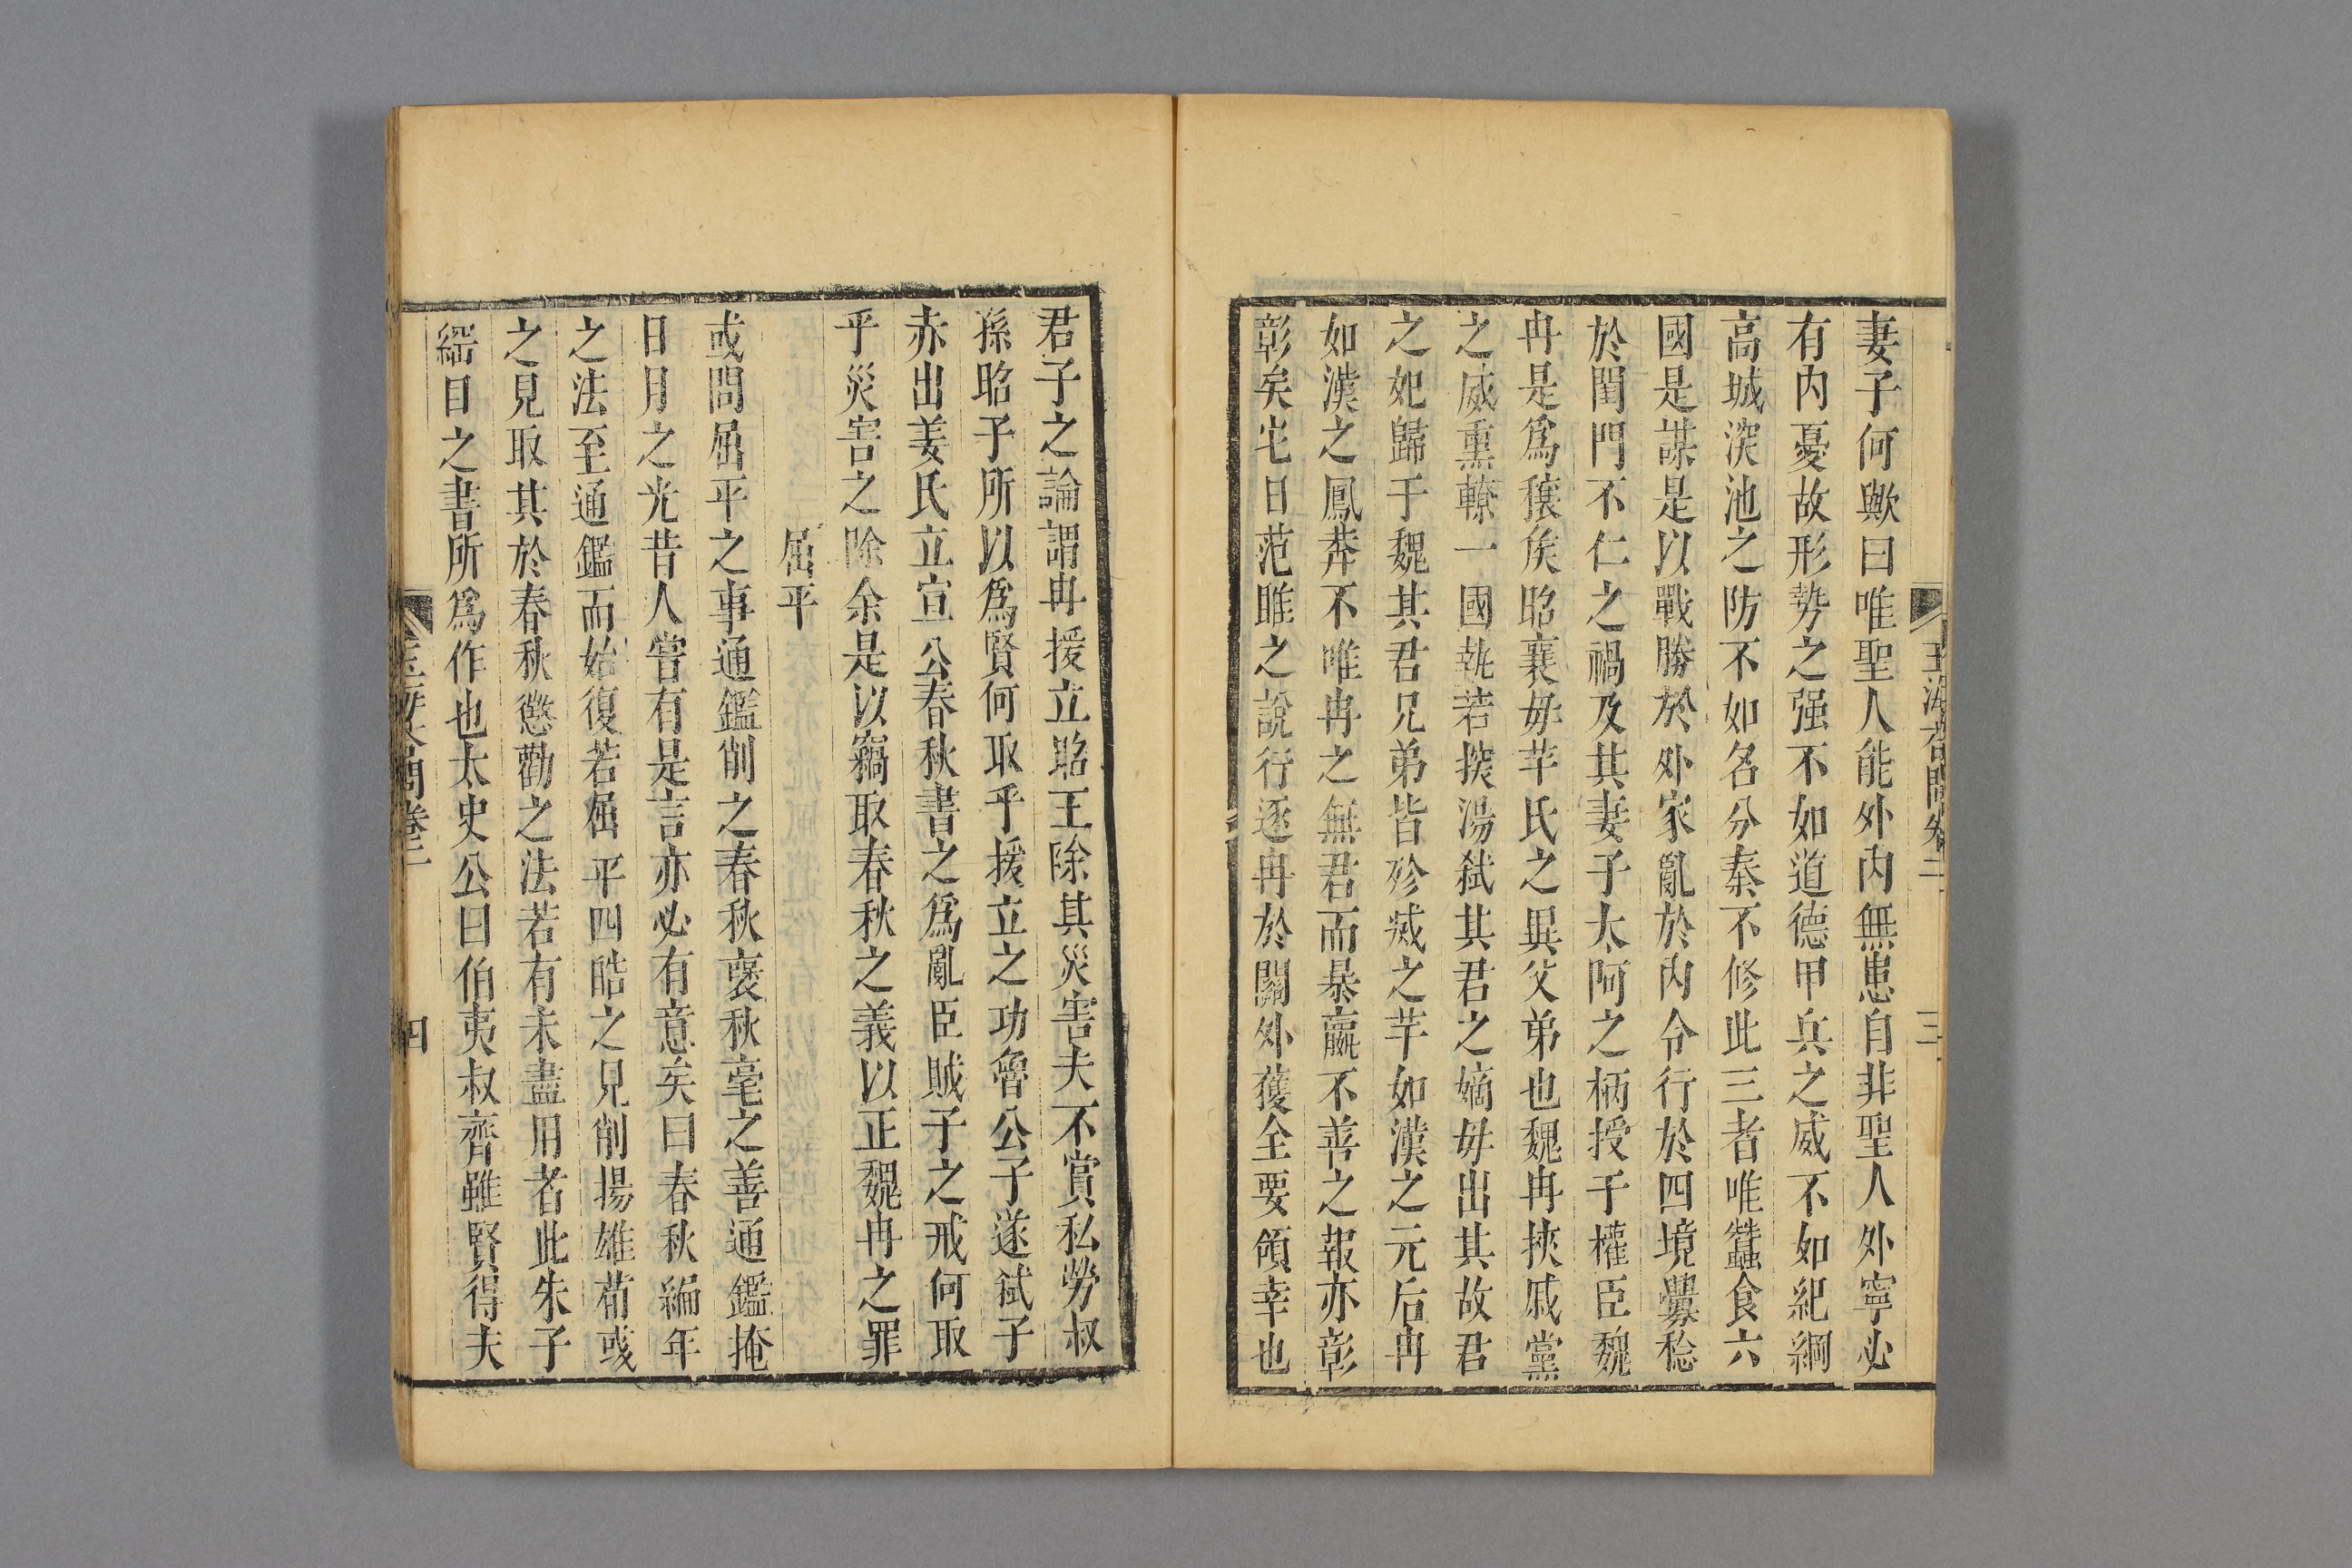 妻子何歟曰唯聖人能外內無患自非聖人外寧必
有內憂故形勢之强不如道德甲兵之威不如紀綱
高城深池之防不如名分秦不修此三者唯蠶食六
國是謀是以戰勝於外家亂於內令行於四境釁稔
於閨門不仁之禍及其妻子太阿之柄授于權臣魏
冉是爲穰侯昭襄毋芉氏之異父弟也魏冉挾戚黨
之威熏轑一國執若探湯弑其君之嫡毋出其故君
之妃歸于魏其君兄弟皆殄烕之芉如漢之元后冉
如漢之鳳莽不唯冉之無君而暴嬴不善之報亦彰
彰矣它日范雎之說行逐冉於關外獲全要領幸也
三
君子之論謂冉援立昭王除其災害夫不賞私勞叔
孫昭子所以爲賢何取乎援立之功魯公子遂弑子
赤出姜氏立宣公春秋書之爲亂臣賊子之戒何取
乎災害之除余是以竊取春秋之義以正魏冉之罪
屈平
或問屈平之事通鑑削之春秋褒秋毫之善通鑑掩
日月之光昔人嘗有是言亦必有意矣曰春秋編年
之法至通鑑而始復若屈平四皓之見削揚雄荀彧
之見取其於春秋懲勸之法若有未盡用者此朱子
綱目之書所爲作也太史公曰伯夷叔齊雖賢得夫
四